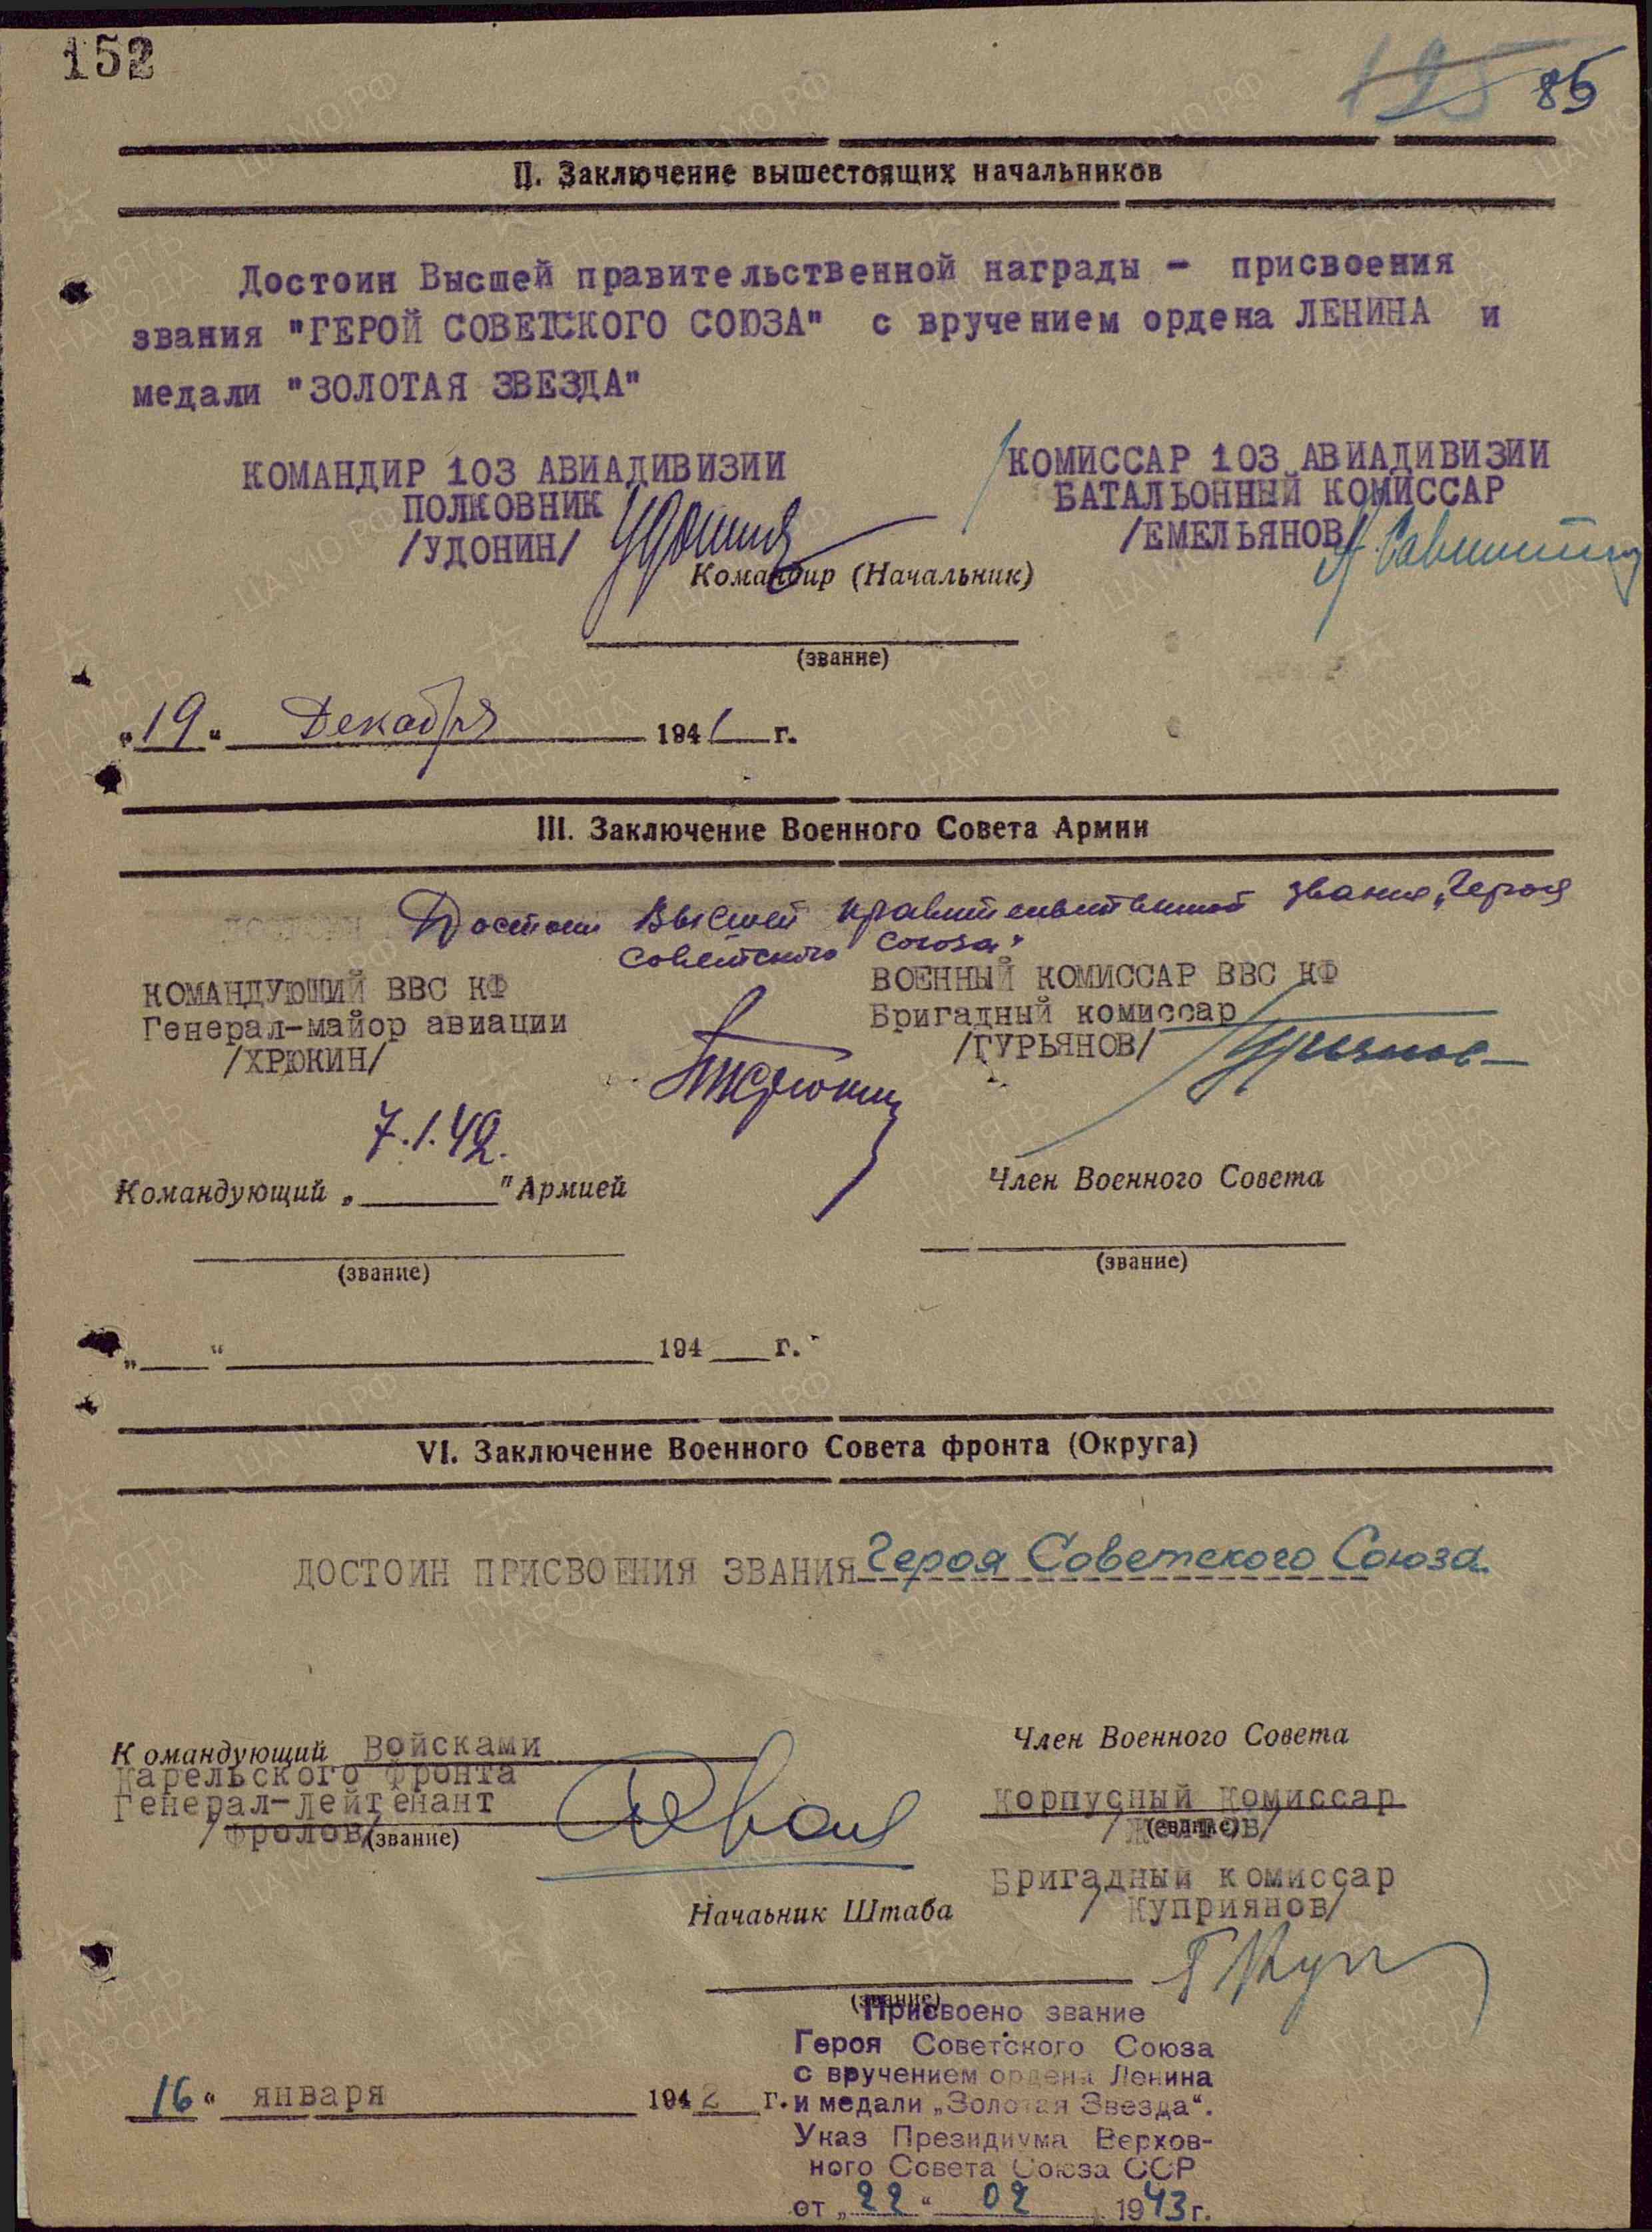 152
125 85
II. Заключение вышестоящих начальников
Достоин Высшей правительственной награды - присвоения
звания "ГЕРОЙ СОВЕТСКОГО СОЮЗА" с вручением ордена ЛЕНИНА и
медали "ЗОЛОТАЯ ЗВЕЗДА"
КОМАНДИР 103 АВИАДИВИЗИИ
ПОЛКОВНИК
/УДОНИН/
КОМИССАР 103 АВИАДИВИЗИИ
БАТАЛЬОННЫЙ КОМИССАР
/ЕМЕЛЬЯНОВ/
Командир (Начальник)
(звание)
„19" Декабря 1941 г.
III. Заключение Военного Совета Армии
Достоин Высшей правительственной звания „Героя
Советского Союза"
КОМАНДУЮЩИЙ ВВС КФ
Генерал-майор авиации
/ХРЮКИН/
ВОЕННЫЙ КОМИССАР ВВС КФ
Бригадный комиссар
/ГУРЬЯНОВ/
7.1.42.
Командующий „ " Армией
Член Военного Совета
(звание)
(звание)
„ " 194 г.
VI. Заключение Военного Совета фронта (Округа)
ДОСТОИН ПРИСВОЕНИЯ ЗВАНИЯ Героя Советского Союза
Командующий Войсками
Карельского фронта
Генерал-лейтенант
/Фролов/ (звание)
Член Военного Совета
Корпусный Комиссар
/Желтов/ (звание)
Бригадный комиссар
/Куприянов/
Начаьник Штаба
(звание)
16 " января 1942 г.
Присвоено звание
Героя Советского Союза
с вручением ордена Ленина
и медали „Золотая Звезда".
Указ Президиума Верхов-
ного Совета Союза ССР
от „22" 02 1943 г.
ПАМЯТЬ НАРОДА
ЦАМО.РФ